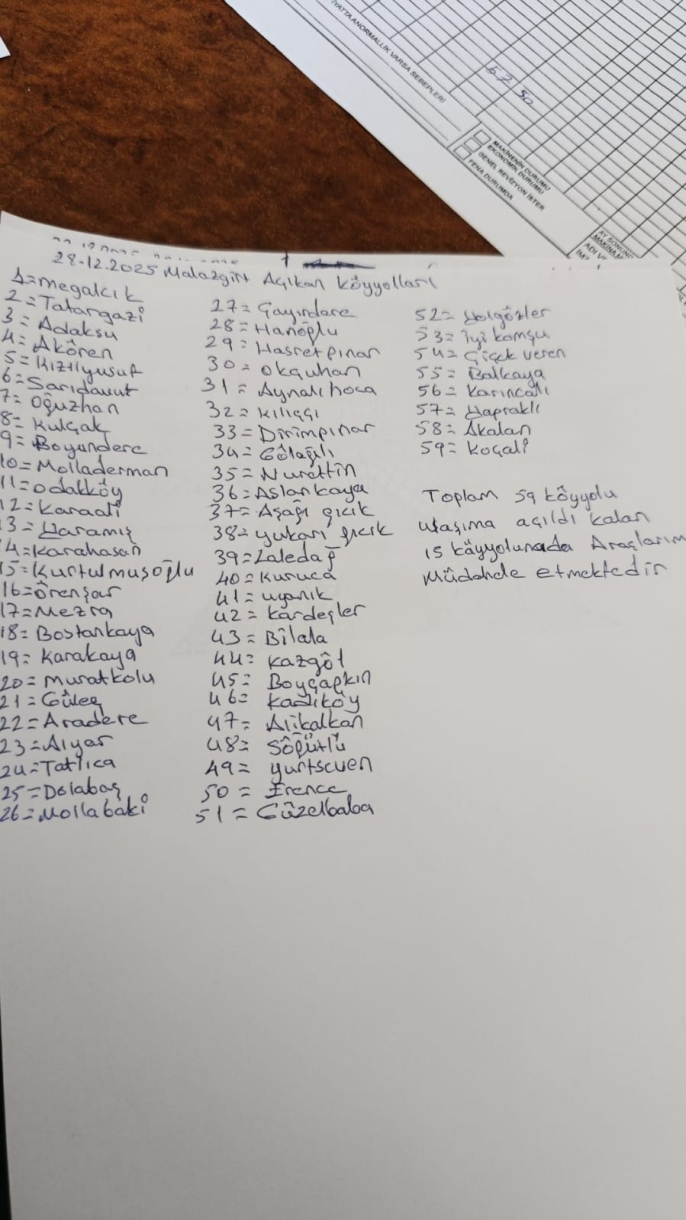 YATTA ANORMALLİK VARSA SEBEPLERİ
MAKİNENİN DURUMU
EKONOMİK DURUMU
GENEL REVİZYON İSTER
FENA DURUMDA
AY SONUN
28-12.2025 Malazgirt Açıkan köyyolları
1=megalcık
2=Tatargazi
3=Adaksu
4=Akören
5=Kızılyusuf
6=Sarıdavut
7=Oğuzhan
8=Kulçak
9=Boyundere
10=Molladerman
11=Odakköy
12=Karaali
3=Yaramış
4=Karahasan
5=Kurtulmuşoğlu
16=Örenşar
17=Mezra
18=Bostankaya
19=Karakaya
20=Muratkolu
21=Güleç
22=Aradere
23=Alyar
24=Tatlıca
25=Dolabaş
26=Mollabaki
27=Çayırdere
28=Hanoğlu
29=Hasretpınar
30=Okçuhan
31=Aynalıhoca
32=kılıççı
33=Dirimpınar
34=Gölağılı
35=Nurettin
36=Aslankaya
37=Aşağı gıcık
38=yukarı gıcık
39=Laledağ
40=Kuruca
41=uyanık
42=kardeşler
43=Bilala
44=kazgöl
45=Boyçapkın
46=kadıköy
47=Alikalkan
48=Söğütlü
49=yurtseven
50=Erence
51=Güzelbaba
52=Yolgözler
53=İyi komşu
54=Çiçek veren
55=Balkaya
56=Karıncalı
57=Yapraklı
58=Akalan
59=Koçali
Toplam 59 köyyolu
ulaşıma açıldı kalan
15 köyyolunada Araçlarım
Müdahele etmektedir